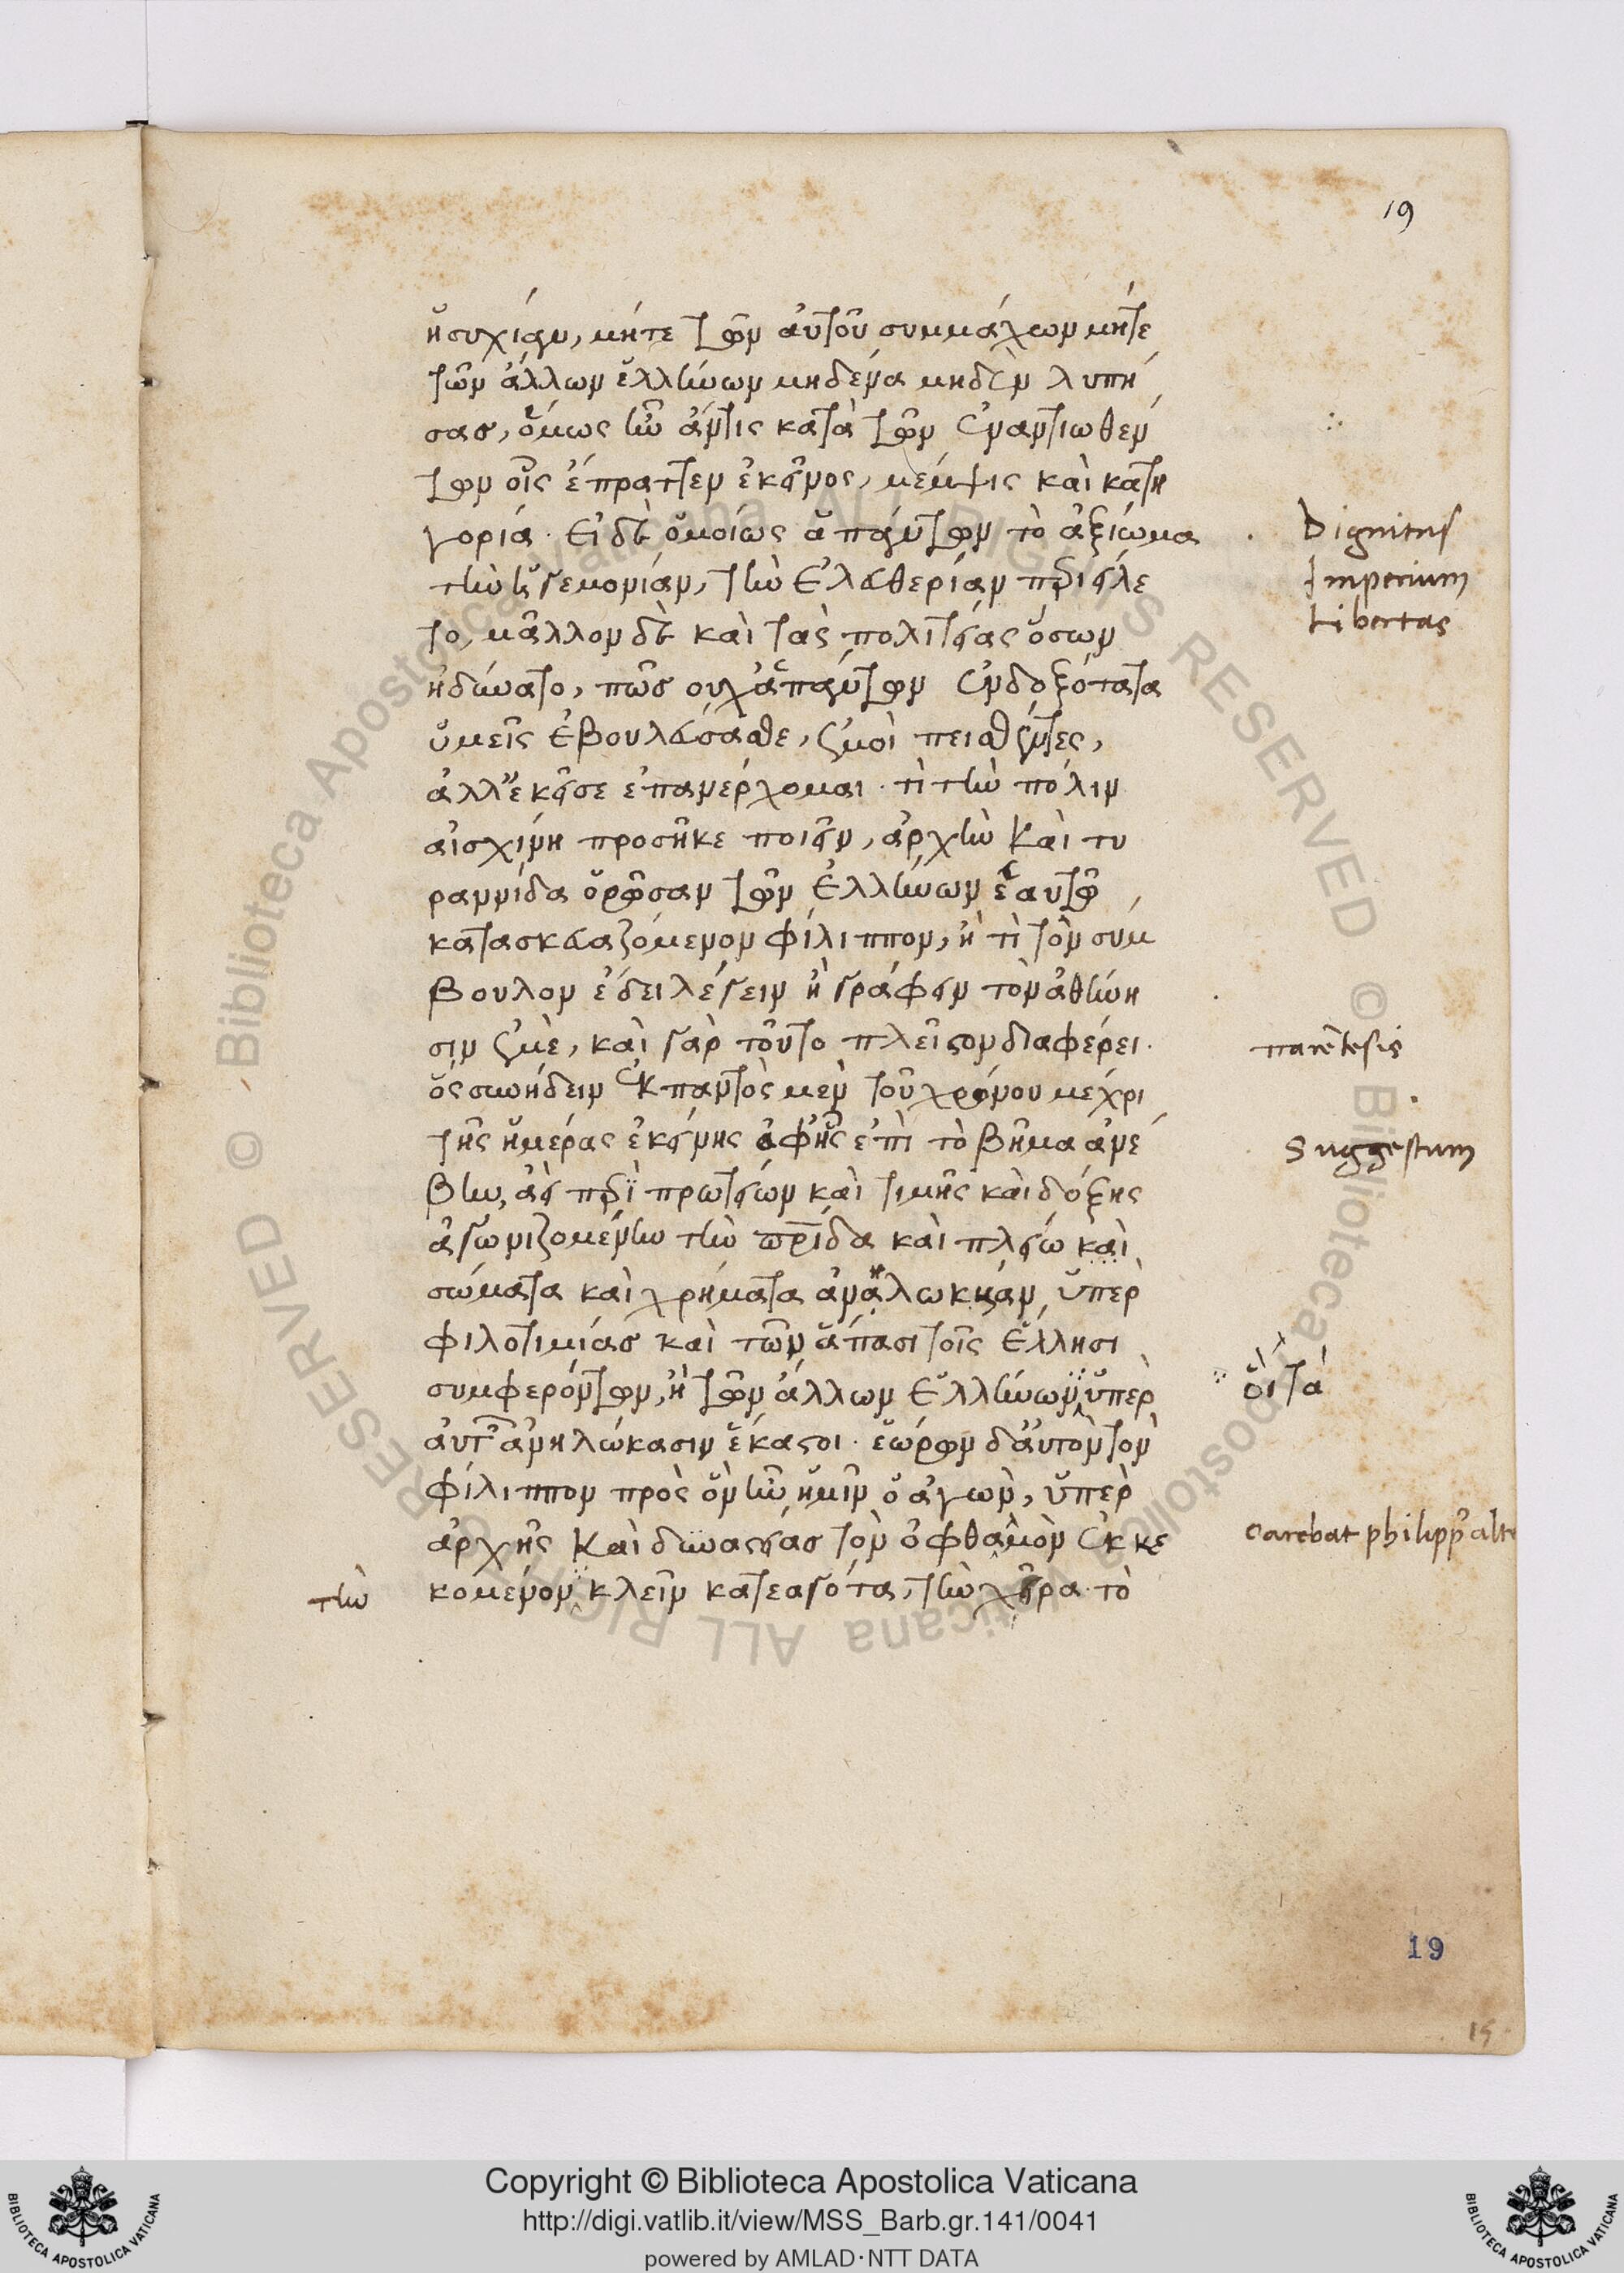 19
ἡσυχίαν, μήτε τῶν αὐτοῦ συμμάχων μήτε
τῶν ἄλλων ἑλλήνων μηδένα μηδὲν λυπή
σας, ὅμως ἦν ἄν τις κατὰ τῶν ἐναντιωθέν
των οἷς ἔπραττεν ἐκεῖνος, μέμψις καὶ κατη
γορία. Εἰ δὲ ὁμοίως ἁπάντων τὸ ἀξίωμα
τὴν ἡγεμονίαν, τὴν ἐλευθερίαν περιείλε
το, μᾶλλον δὲ καὶ τὰς πολιτείας ὅσων
ἠδύνατο, πῶς οὐχ ἁπάντων ἐνδοξότατα
ὑμεῖς ἐβουλεύσασθε, ἐμοὶ πεισθέντες,
ἀλλ' ἐκεῖσε ἐπανέρχομαι. τὶ τὴν πόλιν
αἰσχίνη προσῆκε ποιεῖν, ἀρχὴν καὶ τυ
ραννίδα ὁρῶσαν τῶν ἑλλήνων ἑαυτῷ
κατασκευαζόμενον φίλιππον, ἢ τὶ τὸν σύμ
βουλον ἔδει λέγειν ἢ γράφειν τὸν ἀθήνη
σιν ἐμὲ, καὶ γὰρ τοῦτο πλεῖστον διαφέρει.
ὃς συνήδειν ἐκ παντὸς μὲν τοῦ χρόνου μέχρι
τῆς ἡμέρας ἐκείνης ἀφ' ἧς ἐπὶ τὸ βῆμα ἀνέ
βην, ἀεὶ περὶ πρωτείων καὶ τιμῆς καὶ δόξης
ἀγωνιζομένην τὴν πρίδα καὶ πλείω καὶ
σώματα καὶ χρήματα ἀνηλωκυῖαν ὑπὲρ
φιλοτιμίας καὶ τῶν ἅπασι τοῖς ἕλλησι
συμφερόντων, ἢ τῶν ἄλλων ἑλλήνων ὑπὲρ
αὑτῶν ἀνηλώκασιν ἕκαστοι. ἑώρων δ' αὐτὸν τὸν
φίλιππον πρὸς ὃν ἦν ἡμῖν ὁ ἀγὼν, ὑπὲρ
ἀρχῆς καὶ δυναστείας τὸν ὀφθαλμὸν ἐκκε
κομένον κλεῖν κατεαγότα, τὴν χεῖρα τὸ
τὴν
Dignitas
Imperium
Libertas
parẽtesis
Suggestum
οἱ τὰ
carebat philipp9 alte
19
Copyright © Biblioteca Apostolica Vaticana
http://digi.vatlib.it/view/MSS_Barb.gr.141/0041
powered by AMLAD·NTT DATA